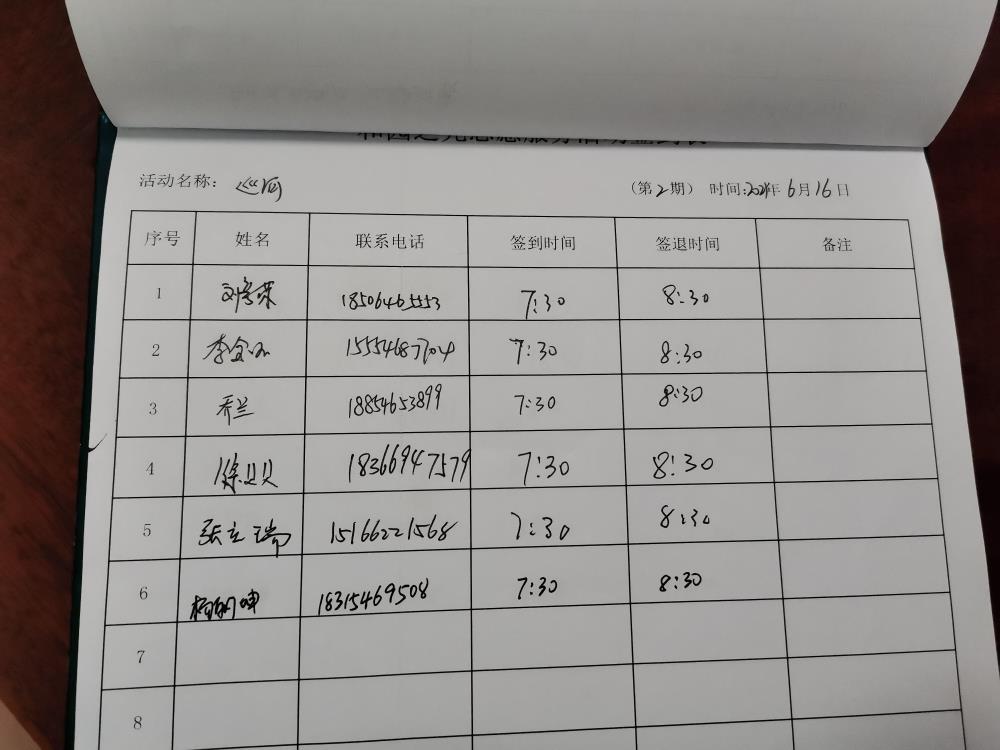 活动名称： 巡河 （第2期） 时间:2021年6月16日
序号 姓名 联系电话 签到时间 签退时间 备注
1 18506465553 7:30 8:30
2 15554687704 7:30 8:30
3 乔兰 18854653899 7:30 8:30
4 徐贝贝 18366947579 7:30 8:30
5 张立瑞 15166221568 7:30 8:30
6 18315469508 7:30 8:30
7
8